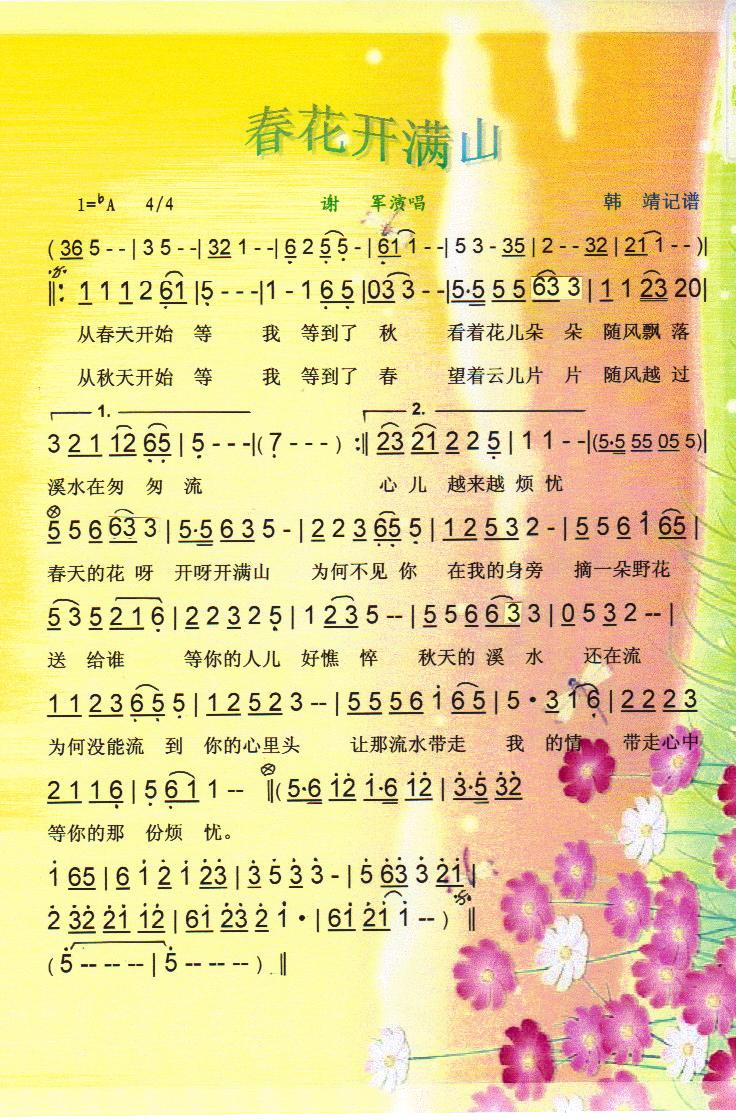 春花开满山
1=ᵇA 4/4 谢 军演唱 韩 靖记谱
( 36 5 - - | 3 5 - - | 32 1 - - | 6 2 5 5 - | 61 1 - - | 5 3 - 35 | 2 - - 32 | 21 1 - - )|
‖: 1 1 1 2 61 | 5 - - - | 1 - 1 6 5 | 03 3 - - | 5·5 5 5 63 3 | 1 1 23 20 |
从春天开始 等 我 等到了 秋 看着花儿朵 朵 随风飘 落
从秋天开始 等 我 等到了 春 望着云儿片 片 随风越 过
1. 2.
3 2 1 12 65 | 5 - - - |( 7 - - - ) :‖ 23 21 2 2 5 | 1 1 - - |(5·5 55 05 5)|
溪水在匆 匆 流 心 儿 越来越 烦 忧
5 5 6 63 3 | 5·5 6 3 5 - | 2 2 3 65 5 | 1 2 5 3 2 - | 5 5 6 1 65 |
春天的花 呀 开呀开满山 为何不见 你 在我的身旁 摘一朵野花
5 3 5 2 1 6 | 2 2 3 2 5 | 1 2 3 5 -- | 5 5 6 6 3 3 | 0 5 3 2 -- |
送 给谁 等你的人儿 好憔 悴 秋天的 溪 水 还在流
1 1 2 3 6 5 5 | 1 2 5 2 3 -- | 5 5 5 6 1 65 | 5 · 3 1 6 | 2 2 2 3
为何没能流 到 你的心里头 让那流水带走 我 的情 带走心中
2 1 1 6 | 5 6 1 1 -- ‖( 5·6 12 1·6 12 | 3·5 32
等你的那 份烦 忧。
1 65 | 6 1 2 1 23 | 3 5 3 3 - | 5 63 3 21 |
2 32 21 12 | 61 23 2 1 · | 61 21 1 -- ) ‖
( 5 -- -- -- | 5 -- -- -- ) ‖